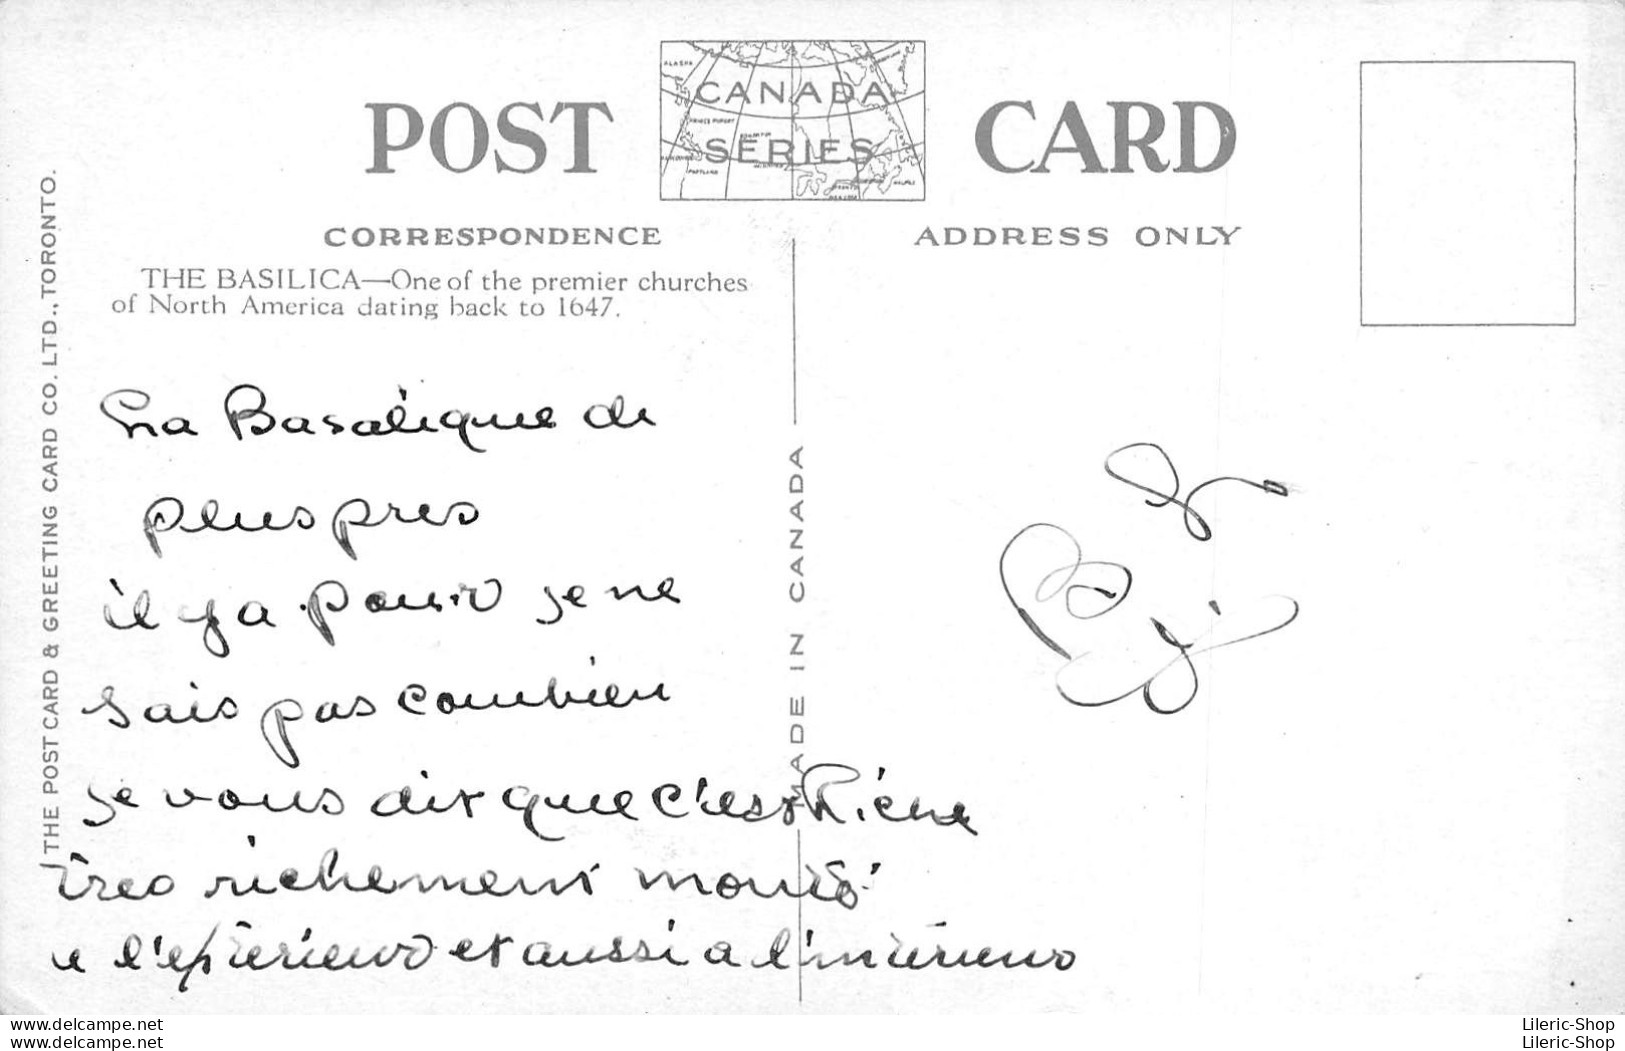 POST CARD
CANADA
SERIES
ALASKA
PRINCE RUPERT
PORTLAND
CORRESPONDENCE
ADDRESS ONLY
THE BASILICA—One of the premier churches
of North America dating back to 1647.
THE POST CARD & GREETING CARD CO. LTD., TORONTO.
MADE IN CANADA
La Basalique de
plus pres
il y a je ne
sais pas combien
je vous dit que c'est Riche
tres richement monté
a l'exterieur et aussi a l'interieur
www.delcampe.net
www.delcampe.net
Lileric-Shop
Lileric-Shop